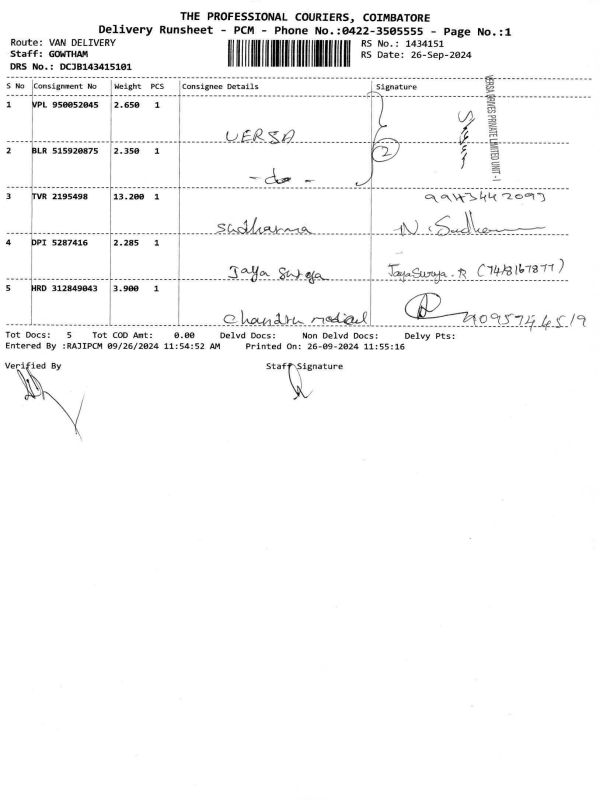 THE PROFESSIONAL COURIERS, COIMBATORE
Delivery Runsheet - PCM - Phone No.:0422-3505555 - Page No.:1
Route: VAN DELIVERY RS No.: 1434151
Staff: GOWTHAM RS Date: 26-Sep-2024
DRS No.: DCJB143415101
S No Consignment No Weight PCS Consignee Details Signature
1 VPL 950052045 2.650 1 VERSA
VERSA DRIVES PRIVATE LIMITED UNIT - 1
2 BLR 515920875 2.350 1 - do - 2
3 TVR 2195498 13.200 1 Sudharma 9943442093
N. Sudha
4 DPI 5287416 2.285 1 Jaya Surya JayaSurya.R (7418167877)
5 HRD 312849043 3.900 1 Chandru medical 9095744519
Tot Docs: 5 Tot COD Amt: 0.00 Delvd Docs: Non Delvd Docs: Delvy Pts:
Entered By :RAJIPCM 09/26/2024 11:54:52 AM Printed On: 26-09-2024 11:55:16
Verified By Staff Signature